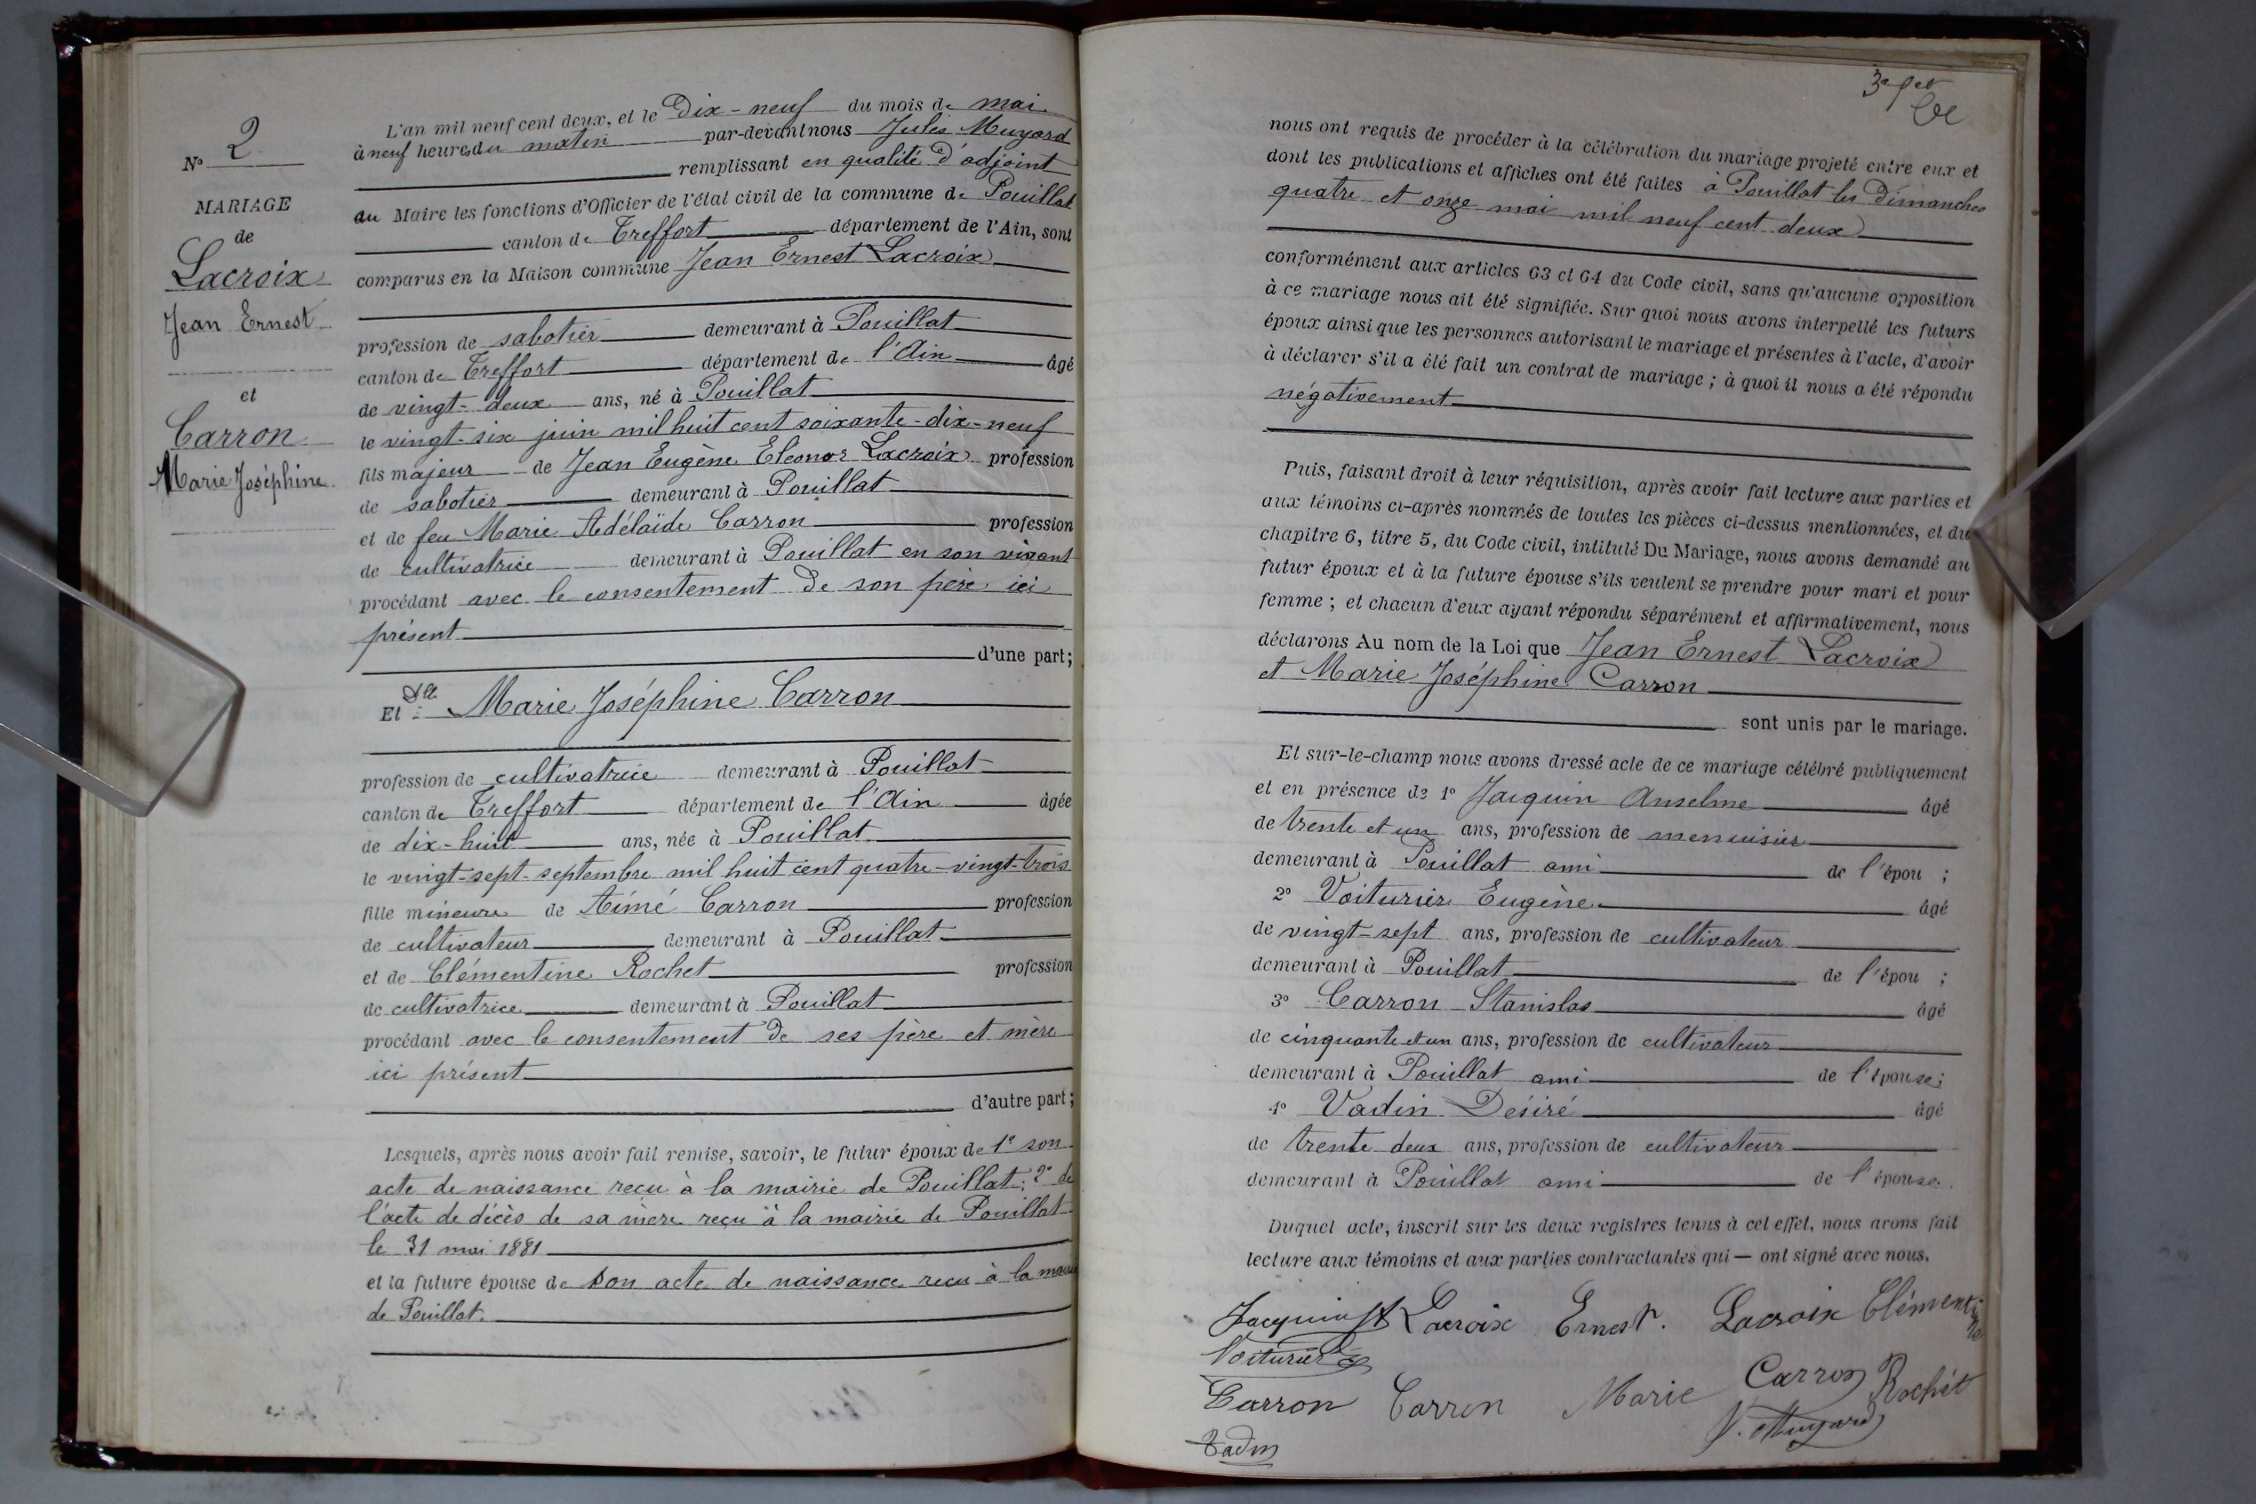 N° 2
MARIAGE
de
Lacroix
Jean Ernest
et
Carron
Marie Joséphine
L'an mil neuf cent deux, et le Dix-neuf du mois de mai
à neuf heures du matin par-devant nous Jules Muyard
remplissant en qualité d'adjoint
au Maire les fonctions d'Officier de l'état civil de la commune de Pouillat
canton de Treffort département de l'Ain, sont
comparus en la Maison commune Jean Ernest Lacroix
profession de sabotier demeurant à Pouillat
canton de Treffort département de l'Ain âgé
de vingt-deux ans, né à Pouillat
le vingt-six juin mil huit cent soixante-dix-neuf
fils majeur de Jean Eugène Eléonor Lacroix profession
de sabotier demeurant à Pouillat
et de feu Marie Adélaïde Carron profession
de cultivatrice demeurant à Pouillat en son vivant
procédant avec le consentement de son père ici
présent
d'une part;
Et Dlle Marie Joséphine Carron
profession de cultivatrice demeurant à Pouillat
canton de Treffort département de l'Ain âgée
de dix-huit ans, née à Pouillat
le vingt-sept septembre mil huit cent quatre-vingt-trois
fille mineure de Aimé Carron profession
de cultivateur demeurant à Pouillat
et de Clémentine Rochet profession
de cultivatrice demeurant à Pouillat
procédant avec le consentement de ses père et mère
ici présent
d'autre part;
Lesquels, après nous avoir fait remise, savoir, le futur époux de 1° son
acte de naissance reçu à la mairie de Pouillat; 2° de
l'acte de décès de sa mère reçu à la mairie de Pouillat
le 31 mai 1881
et la future épouse de son acte de naissance reçu à la mairie
de Pouillat.
nous ont requis de procéder à la célébration du mariage projeté entre eux et
dont les publications et affiches ont été faites à Pouillat les Dimanches
quatre et onze mai mil neuf cent deux
conformément aux articles 63 et 64 du Code civil, sans qu'aucune opposition
à ce mariage nous ait été signifiée. Sur quoi nous avons interpellé les futurs
époux ainsi que les personnes autorisant le mariage et présentes à l'acte, d'avoir
à déclarer s'il a été fait un contrat de mariage; à quoi il nous a été répondu
négativement
Puis, faisant droit à leur réquisition, après avoir fait lecture aux parties et
aux témoins ci-après nommés de toutes les pièces ci-dessus mentionnées, et du
chapitre 6, titre 5, du Code civil, intitulé Du Mariage, nous avons demandé au
futur époux et à la future épouse s'ils veulent se prendre pour mari et pour
femme; et chacun d'eux ayant répondu séparément et affirmativement, nous
déclarons Au nom de la Loi que Jean Ernest Lacroix
et Marie Joséphine Carron
sont unis par le mariage.
Et sur-le-champ nous avons dressé acte de ce mariage célébré publiquement
et en présence de 1° Jacquin Anselme âgé
de trente et un ans, profession de menuisier
demeurant à Pouillat ami de l'épou ;
2° Voiturier Eugène âgé
de vingt-sept ans, profession de cultivateur
demeurant à Pouillat de l'épou ;
3° Carron Stanislas âgé
de cinquante et un ans, profession de cultivateur
demeurant à Pouillat ami de l'épouse;
4° Vadin Désiré âgé
de trente deux ans, profession de cultivateur
demeurant à Pouillat ami de l'épouse.
Duquel acte, inscrit sur les deux registres tenus à cet effet, nous avons fait
lecture aux témoins et aux parties contractantes qui — ont signé avec nous.
Jacquin Lacroix Ernest. Lacroix Clémentine
Voiturier
Carron Carron Marie Carron Rochet
J. Muyard
Vadin